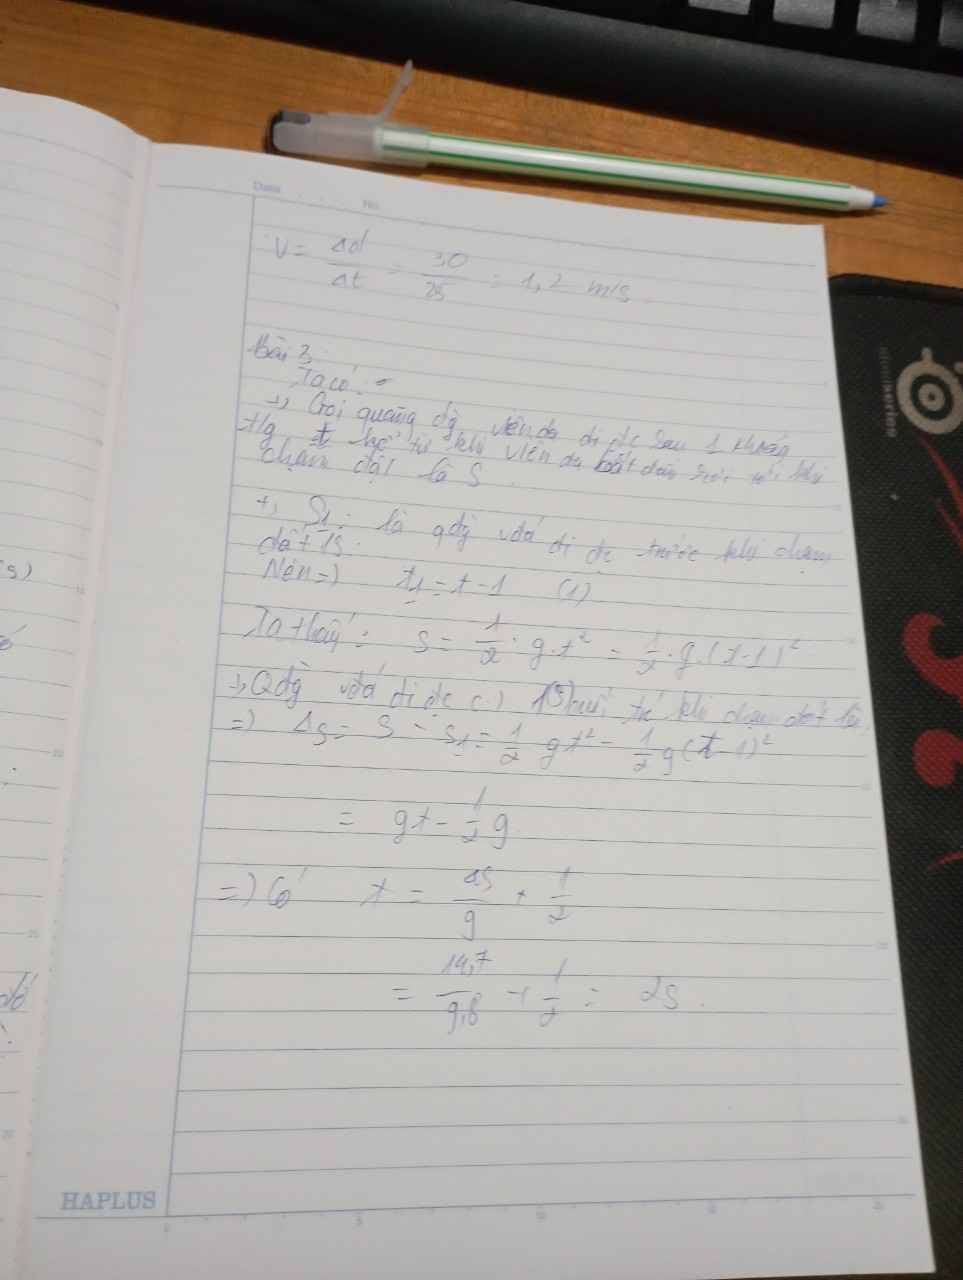 Date
No.
V = Δd/Δt = 30/25 = 1,2 m/s
Bài 3
Ta có:
+, Gọi quãng đg viên đá đi đc sau 1 khoảng
t/g t kể từ khi viên đá bắt đầu rơi tới khi
chạm đất là S
+, S1: là qđg vđá đi đc trước khi chạm
đất 1s.
Nên =) t1 = t - 1 (1)
Ta thấy: S = 1/2 . g.t² = 1/2 . g.(t-1)²
+, Qđg vđá đi đc 1(s) trc khi chạm đất là
=) ΔS = S - S1 = 1/2 gt² - 1/2 g(t-1)²
= gt - 1/2 g
=) Có t = ΔS/g + 1/2
= 14,7/9,8 + 1/2 = 2s.
HAPLUS
s)
steelseries